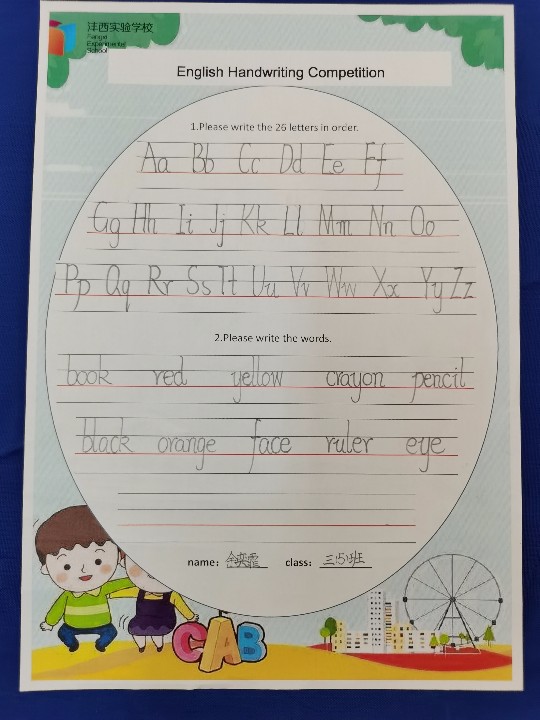 沣西实验学校
Fengxi
Experimental
School
English Handwriting Competition
1.Please write the 26 letters in order.
Aa Bb Cc Dd Ee Ff
Gg Hh Ii Jj Kk Ll Mm Nn Oo
Pp Qq Rr Ss Tt Uu Vv Ww Xx Yy Zz
2.Please write the words.
book red yellow crayon pencil
black orange face ruler eye
name: class: 三(5)班
CAB